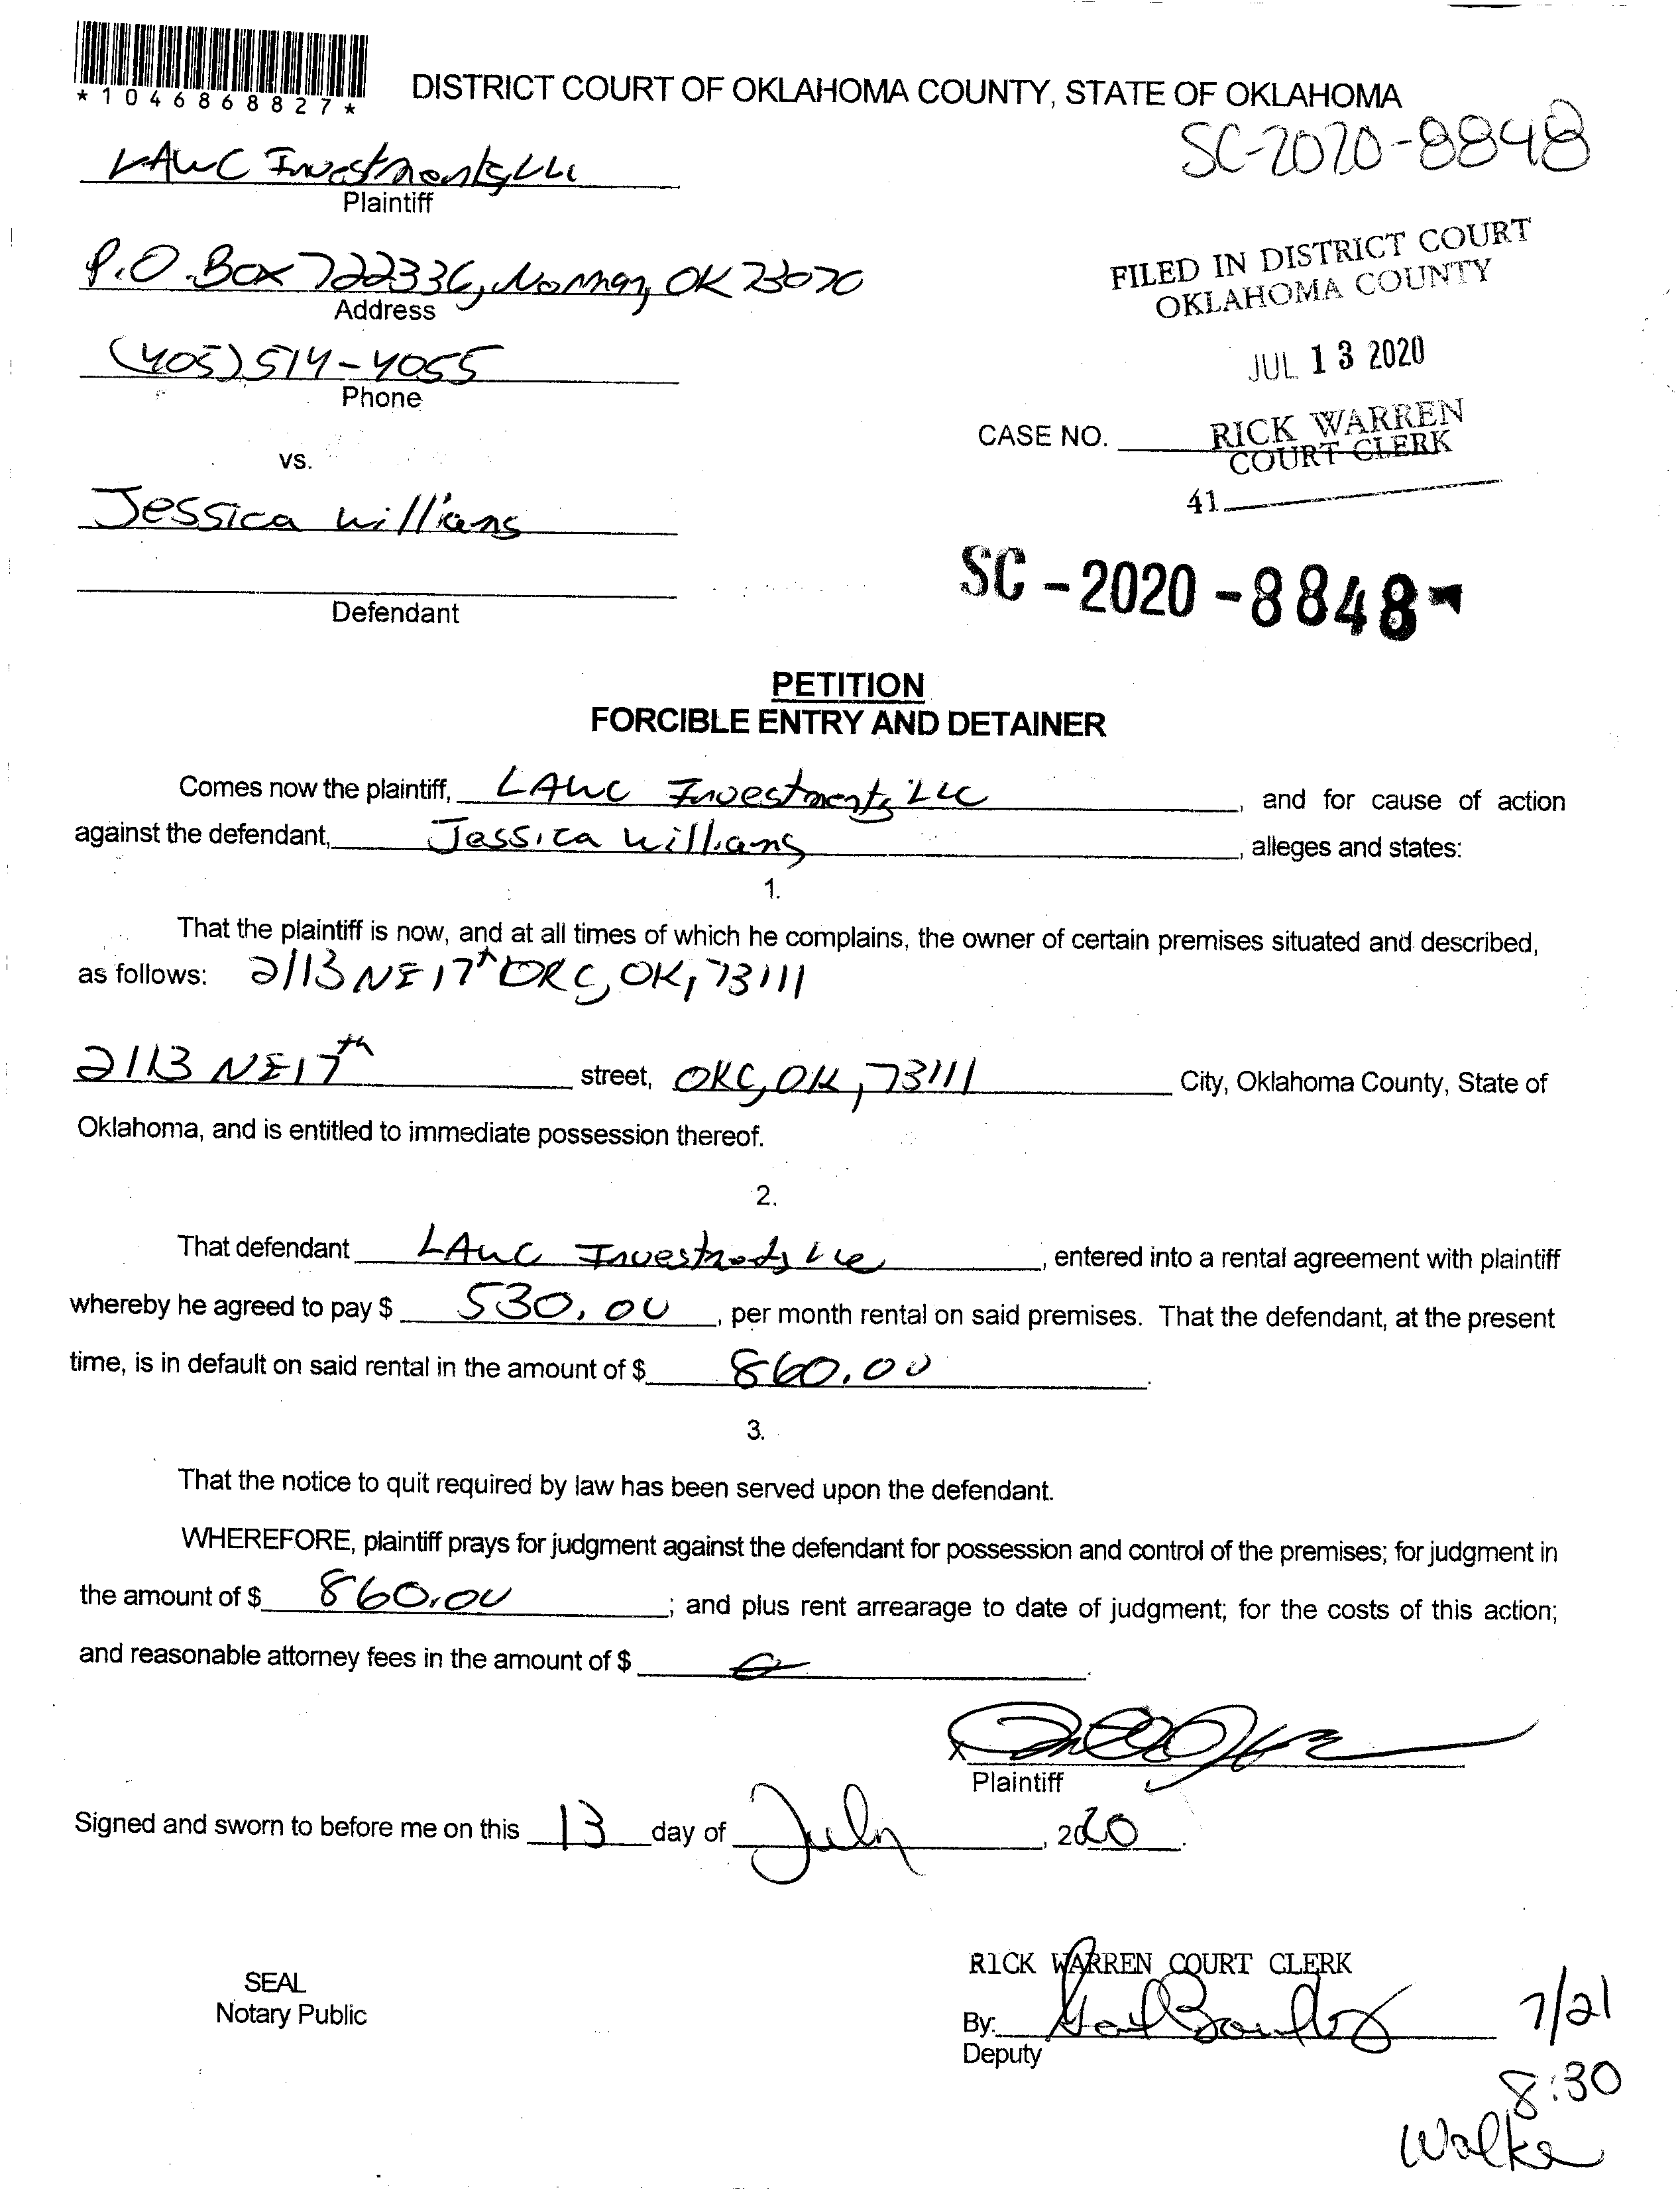 *1046868827*
DISTRICT COURT OF OKLAHOMA COUNTY, STATE OF OKLAHOMA
SC-2020-8848
LAWC Investments, LLC
Plaintiff
FILED IN DISTRICT COURT
OKLAHOMA COUNTY
P.O. Box 722336, Norman, OK 73070
Address
JUL 13 2020
(405) 514-4055
Phone
CASE NO.
RICK WARREN
COURT CLERK
vs.
41
Jessica Williams
SC-2020-8848
Defendant
PETITION
FORCIBLE ENTRY AND DETAINER
Comes now the plaintiff, LAWC Investments, LLC, and for cause of action
against the defendant, Jessica Williams, alleges and states:
1.
That the plaintiff is now, and at all times of which he complains, the owner of certain premises situated and described,
as follows: 2113 NE 17th OKC, OK, 73111
2113 NE 17th street, OKC, OK, 73111 City, Oklahoma County, State of
Oklahoma, and is entitled to immediate possession thereof.
2.
That defendant LAWC Investments LLC, entered into a rental agreement with plaintiff
whereby he agreed to pay $ 530.00, per month rental on said premises. That the defendant, at the present
time, is in default on said rental in the amount of $ 860.00.
3.
That the notice to quit required by law has been served upon the defendant.
WHEREFORE, plaintiff prays for judgment against the defendant for possession and control of the premises; for judgment in
the amount of $ 860.00; and plus rent arrearage to date of judgment; for the costs of this action;
and reasonable attorney fees in the amount of $
X
Plaintiff
Signed and sworn to before me on this 13 day of July, 2020.
RICK WARREN COURT CLERK
SEAL
Notary Public
By:
Deputy
7/21
8:30